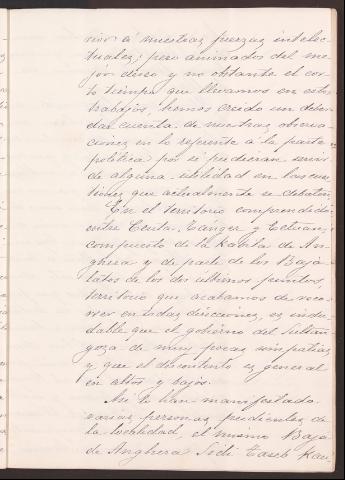 rior á nuestras fuerzas intelec-
tuales; pero animados del me-
jor deseo y no obstante el cor-
to tiempo que llevamos en estos
trabajos, hemos creido un deber
dar cuenta de nuestras observa-
ciones en lo referente á la parte
política por si pudieran servir
de alguna utilidad en las cues-
tiones que actualmente se debaten.
En el territorio comprendido
entre Ceuta, Tanger y Tetuan,
compuesto de la Kabila de An-
ghera y de parte de los Baja-
latos de los dos últimos puntos,
territorio que acabamos de reco-
rrer en todas direcciones, es indu-
dable que el gobierno del Sultan
goza de muy pocas simpatias
y que el descontento es general
en altos y bajos.
Asi lo han manifestado
varias personas pudientes de
la localidad, el mismo Bajá
de Anghera Sidi